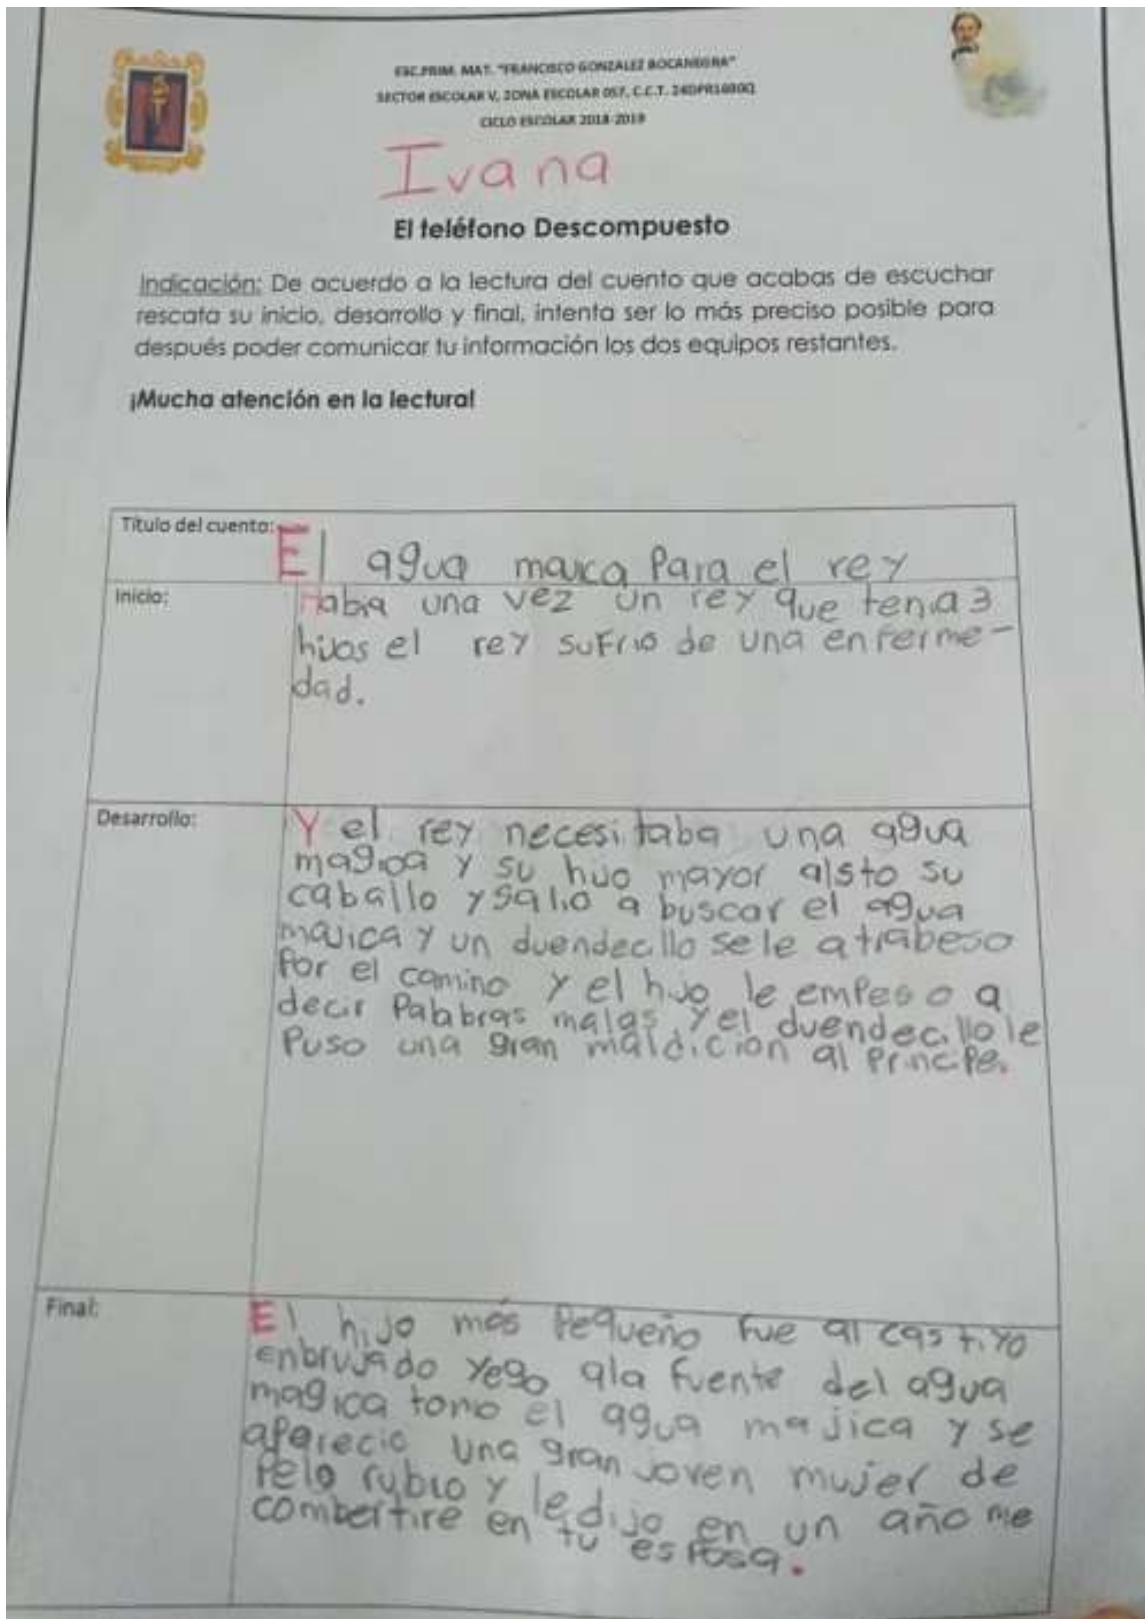 ESC.PRIM. MAT. "FRANCISCO GONZALEZ BOCANEGRA"
SECTOR ESCOLAR V, ZONA ESCOLAR 057, C.C.T.
CICLO ESCOLAR 2018-2019
Ivana
El teléfono Descompuesto
Indicación: De acuerdo a la lectura del cuento que acabas de escuchar
rescata su inicio, desarrollo y final, intenta ser lo más preciso posible para
después poder comunicar tu información los dos equipos restantes.
¡Mucha atención en la lectura!
Título del cuento:
El agua majica Para el rey
Inicio:
Habia una vez un rey que tenia 3
hijos el rey sufrio de una enferme-
dad.
Desarrollo:
Y el rey necesitaba una agua
magica y su hijo mayor alsto su
caballo y salio a buscar el agua
majica y un duendecillo se le atrabeso
Por el camino y el hijo le empeso a
decir Palabras malas y el duendecillo le
Puso una gran maldicion al Principe.
Final:
El hijo más Pequeño fue al castiyo
enbrujado yego ala fuente del agua
magica tomo el agua majica y se
aparecio una gran joven mujer de
Pelo rubio y le dijo en un año me
combertire en tu esposa.